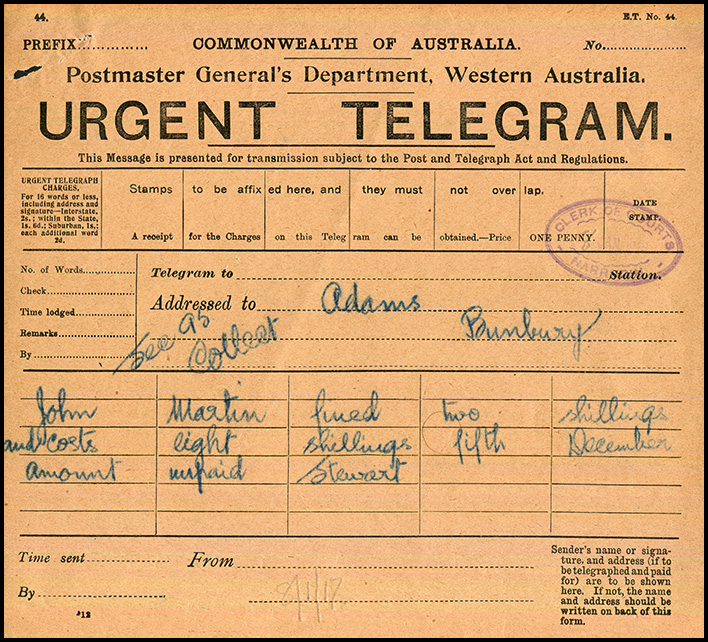 44.
E.T. No. 44.
PREFIX............
COMMONWEALTH OF AUSTRALIA.
No...............
Postmaster General's Department, Western Australia.
URGENT TELEGRAM.
This Message is presented for transmission subject to the Post and Telegraph Act and Regulations.
URGENT TELEGRAPH
CHARGES.
For 16 words or less,
including address and
signature—Interstate,
2s.; within the State,
1s. 6d.; Suburban, 1s.;
each additional word
2d.
Stamps to be affixed here, and they must not overlap.
A receipt for the Charges on this Telegram can be obtained.—Price ONE PENNY.
DATE
STAMP.
CLERK OF COURTS
No. of Words
Check
Time lodged
Remarks
By
Telegram to
Station.
Addressed to Adams
Bunbury
See as
Collect
John Martin fined two shillings
and costs eight shillings fifth December
amount unpaid Stewart
Time sent
From
By
8/1/17
*12
Sender's name or signa-
ture, and address (if to
be telegraphed and paid
for) are to be shown
here. If not, the name
and address should be
written on back of this
form.